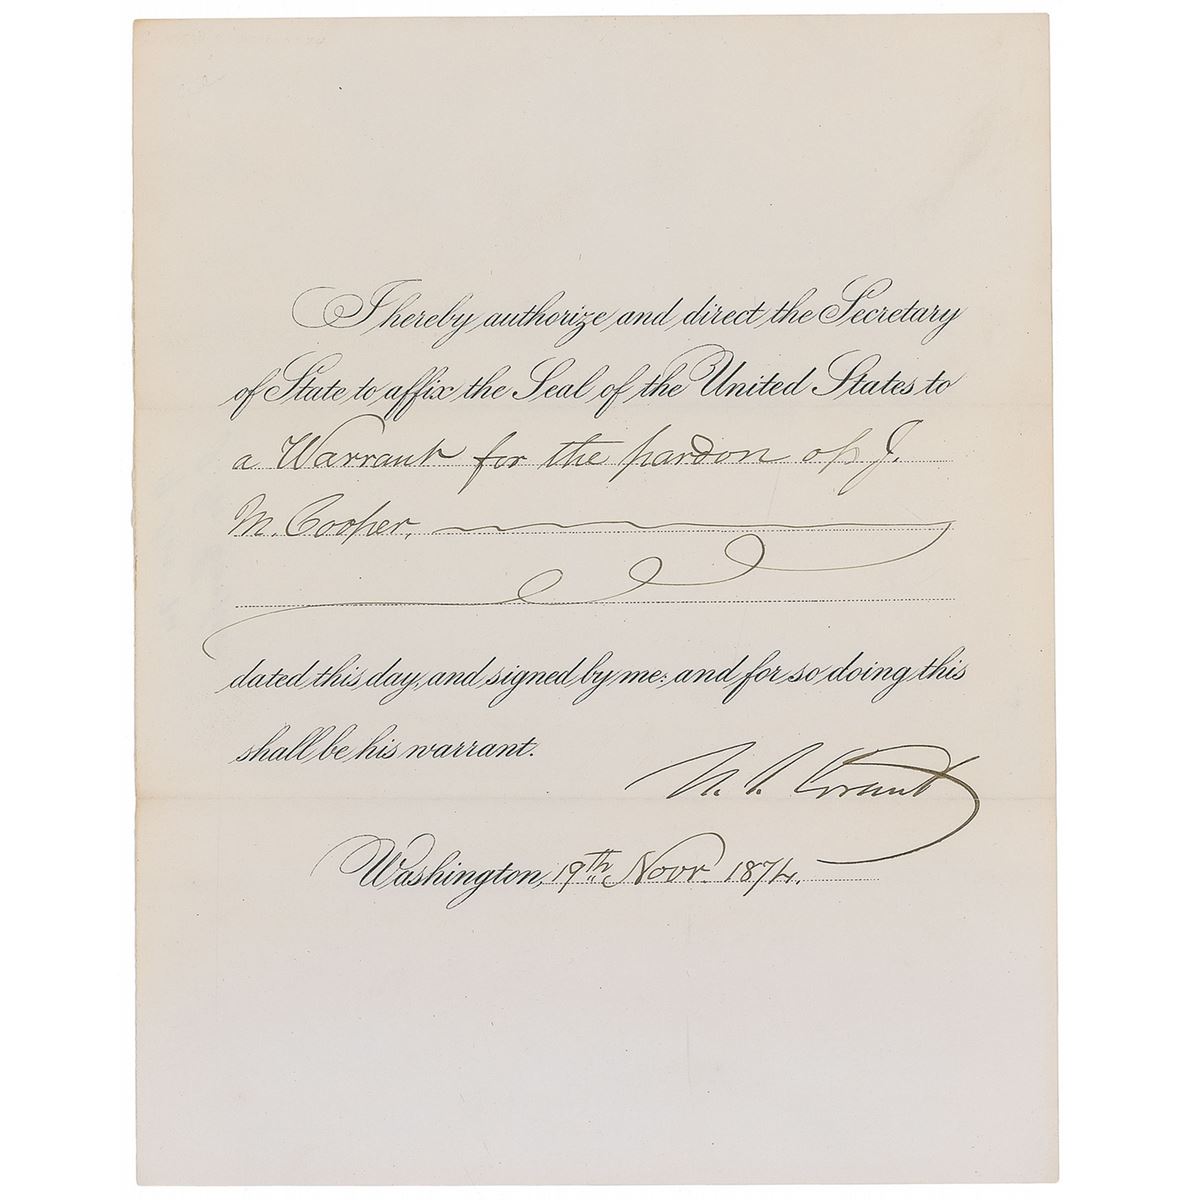 I hereby authorize and direct the Secretary
of State to affix the Seal of the United States to
a Warrant for the pardon of J.
M. Cooper.
dated this day, and signed by me: and for so doing this
shall be his warrant.
U. S. Grant
Washington, 19th Novr. 1874.